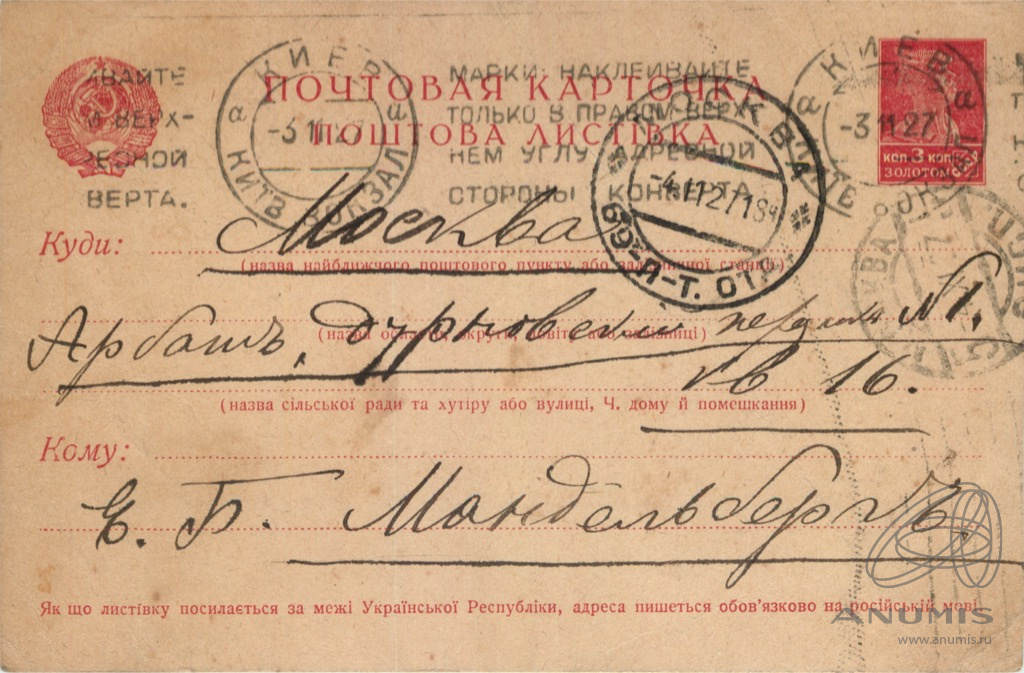 ПОЧТОВАЯ КАРТОЧКА
ПОШТОВА ЛИСТІВКА
МАРКИ НАКЛЕИВАЙТЕ
ТОЛЬКО В ПРАВОМ ВЕРХ-
НЕМ УГЛУ АДРЕСНОЙ
СТОРОНЫ КОНВЕРТА
АВАЙТЕ
М ВЕРХ-
РЕСНОЙ
ВЕРТА.
КИЕВ
а а
-3 11 27
КИЇВ ВОКЗАЛ
КИЕВ
а
-3 11 27
МОСКВА
-4.11.27 18ч
69-П-Т. ОТД.
КОП 3 КОП
ЗОЛОТОМ
Куди: Москва
(назва найближчого поштового пункту або залізничної станції)
Арбатъ, Дурновский №1.
(назва округи, повіту або залізниці)
кв 16.
(назва сільської ради та хутіру або вулиці, Ч. дому й помешкання)
Кому:
Е. Б. Мандельбергъ
Як що листівку посилається за межі Української Республіки, адреса пишеться обов'язково на російській мові.
ANUMIS
www.anumis.ru